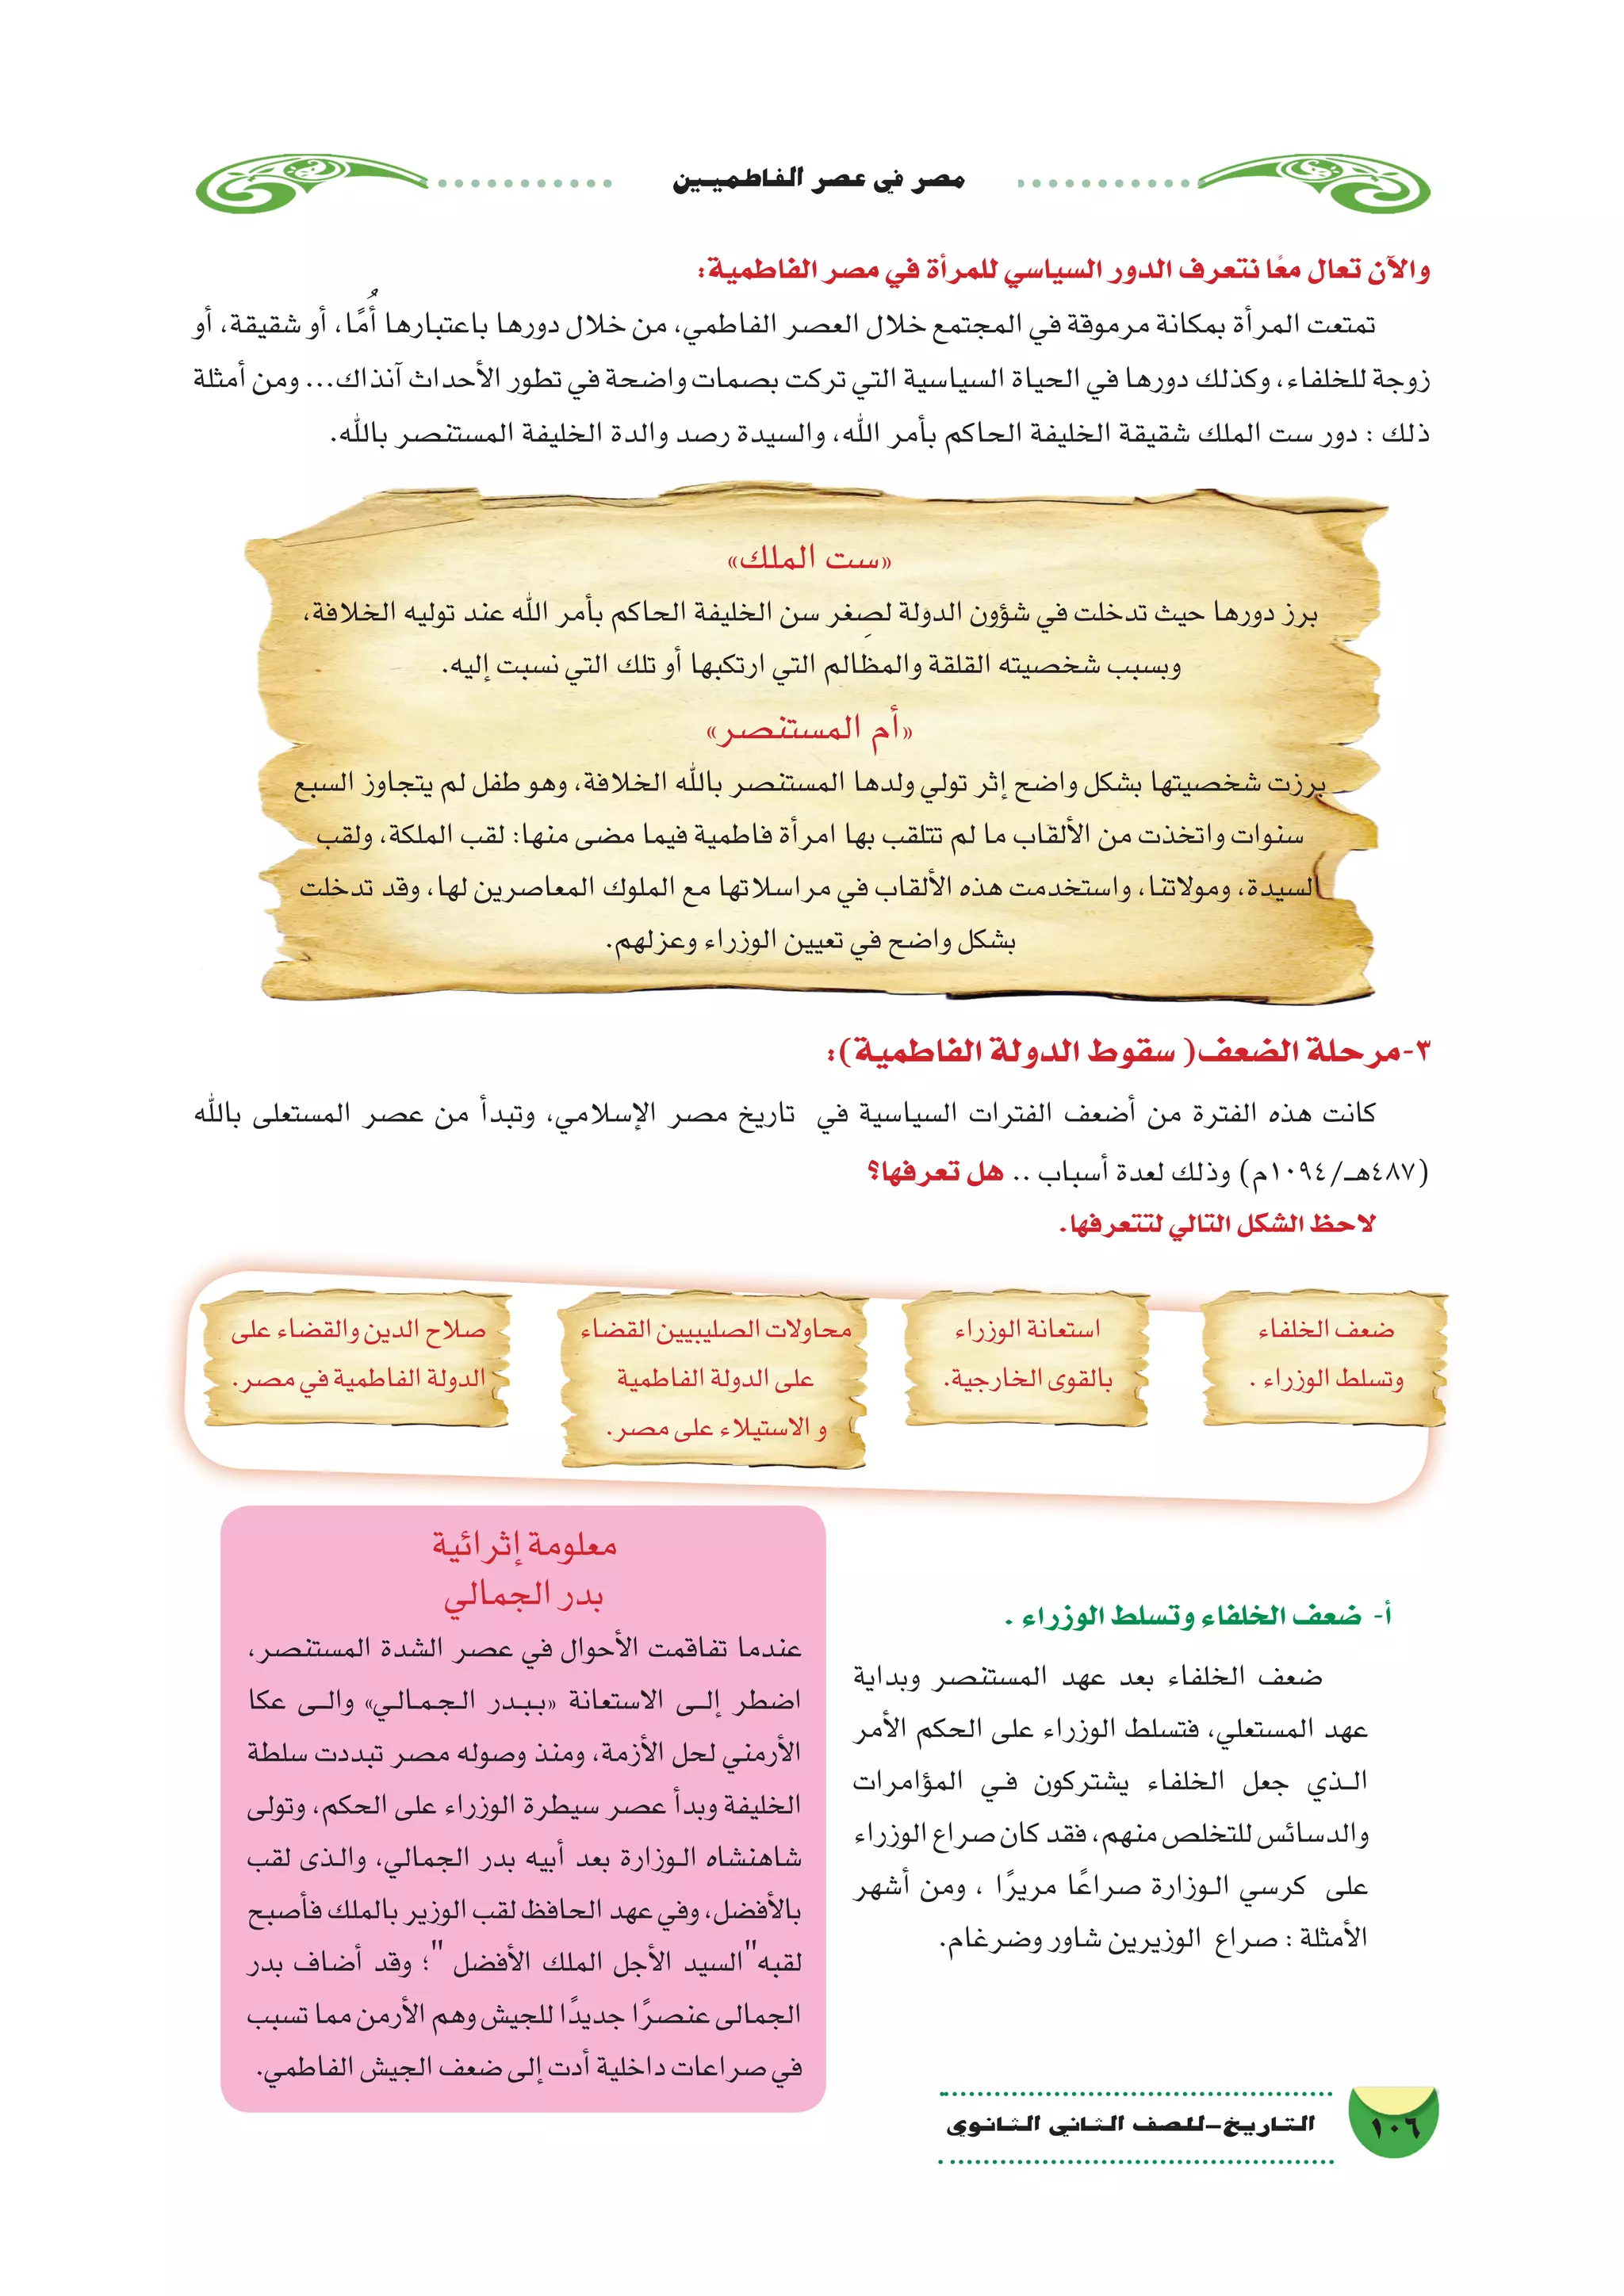 مصر فى عصر الفاطميين
والآن تعال معًا نتعرف الدور السياسي للمرأة في مصر الفاطمية:
تمتعت المرأة بمكانة مرموقة في المجتمع خلال العصر الفاطمي، من خلال دورها باعتبارها أُمًّا، أو شقيقة، أو
زوجة للخلفاء، وكذلك دورها في الحياة السياسية التي تركت بصمات واضحة في تطور الأحداث آنذاك... ومن أمثلة
ذلك : دور ست الملك شقيقة الخليفة الحاكم بأمر الله، والسيدة رصد والدة الخليفة المستنصر بالله.
«ست الملك»
برز دورها حيث تدخلت في شؤون الدولة لصِغر سن الخليفة الحاكم بأمر الله عند توليه الخلافة،
وبسبب شخصيته القلقة والمظالم التي ارتكبها أو تلك التي نسبت إليه.
«أم المستنصر»
برزت شخصيتها بشكل واضح إثر تولي ولدها المستنصر بالله الخلافة، وهو طفل لم يتجاوز السبع
سنوات واتخذت من الألقاب ما لم تتلقب بها امرأة فاطمية فيما مضى منها: لقب الملكة، ولقب
السيدة، ومولاتنا، واستخدمت هذه الألقاب في مراسلاتها مع الملوك المعاصرين لها، وقد تدخلت
بشكل واضح في تعيين الوزراء وعزلهم.
٣-مرحلة الضعف( سقوط الدولة الفاطمية):
كانت هذه الفترة من أضعف الفترات السياسية في تاريخ مصر الإسلامي، وتبدأ من عصر المستعلى بالله
(٤٨٧هـ/١٠٩٤م) وذلك لعدة أسباب .. هل تعرفها؟
لاحظ الشكل التالي لتتعرفها.
ضعف الخلفاء
وتسلط الوزراء .
استعانة الوزراء
بالقوى الخارجية.
محاولات الصليبيين القضاء
على الدولة الفاطمية
و الاستيلاء على مصر.
صلاح الدين والقضاء على
الدولة الفاطمية في مصر.
أ- ضعف الخلفاء وتسلط الوزراء .
ضعف الخلفاء بعد عهد المستنصر وبداية
عهد المستعلي، فتسلط الوزراء على الحكم الأمر
الذي جعل الخلفاء يشتركون في المؤامرات
والدسائس للتخلص منهم، فقد كان صراع الوزراء
على كرسي الوزارة صراعًا مريرًا ، ومن أشهر
الأمثلة : صراع الوزيرين شاور وضرغام.
معلومة إثرائية
بدر الجمالي
عندما تفاقمت الأحوال في عصر الشدة المستنصر،
اضطر إلى الاستعانة «ببدر الجمالي» والى عكا
الأرمني لحل الأزمة، ومنذ وصوله مصر تبددت سلطة
الخليفة وبدأ عصر سيطرة الوزراء على الحكم، وتولى
شاهنشاه الوزارة بعد أبيه بدر الجمالي، والذى لقب
بالأفضل، وفي عهد الحافظ لقب الوزير بالملك فأصبح
لقبه "السيد الأجل الملك الأفضل "؛ وقد أضاف بدر
الجمالى عنصرًا جديدًا للجيش وهم الأرمن مما تسبب
في صراعات داخلية أدت إلى ضعف الجيش الفاطمي.
التاريخ-للصف الثانى الثانوى
١٠٦